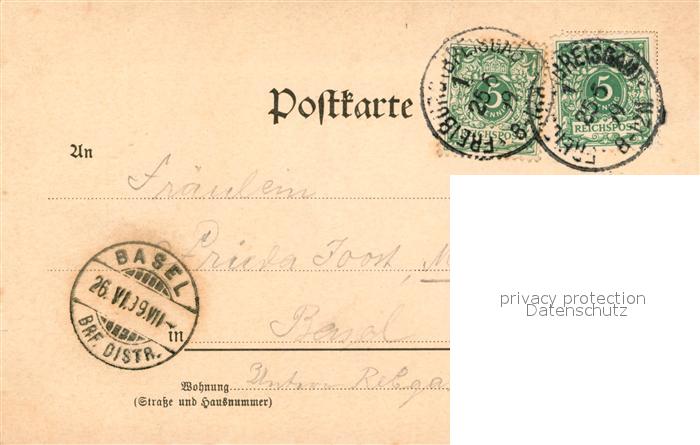 FREIBURG (BREISGAU)
5
PFENNIG
REICHSPOST
5
REICHSPOST
Postkarte
An
Fräulein
Frieda Joost, M
privacy protection
Datenschutz
BASEL
26. VI. 99. VII
BRF. DISTR.
in Basel
Wohnung Untere Rebga
(Straße und Hausnummer)